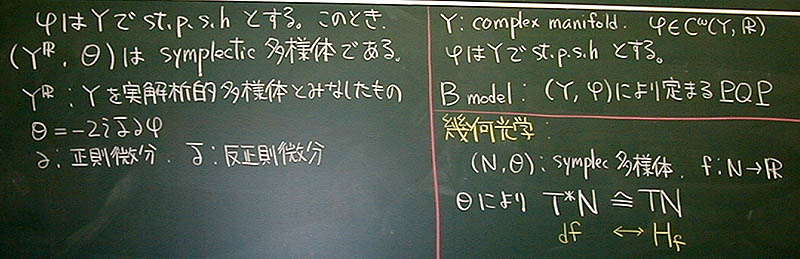 φはYでst.p.s.hとする。このとき、
(Y^ℝ, θ)は symplectic 多様体である。
Y^ℝ : Yを実解析的多様体とみなしたもの
θ = -2i ∂̄∂φ
∂ : 正則微分. ∂̄ : 反正則微分
Y: complex manifold. φ∈C^ω(Y, ℝ)
φはYでst.p.s.hとする。
B model : (Y, φ)により定まる PQP
幾何光学:
(N, θ) : symplec 多様体. f: N→ℝ
θにより T*N ≅ TN
df ↔ H_f